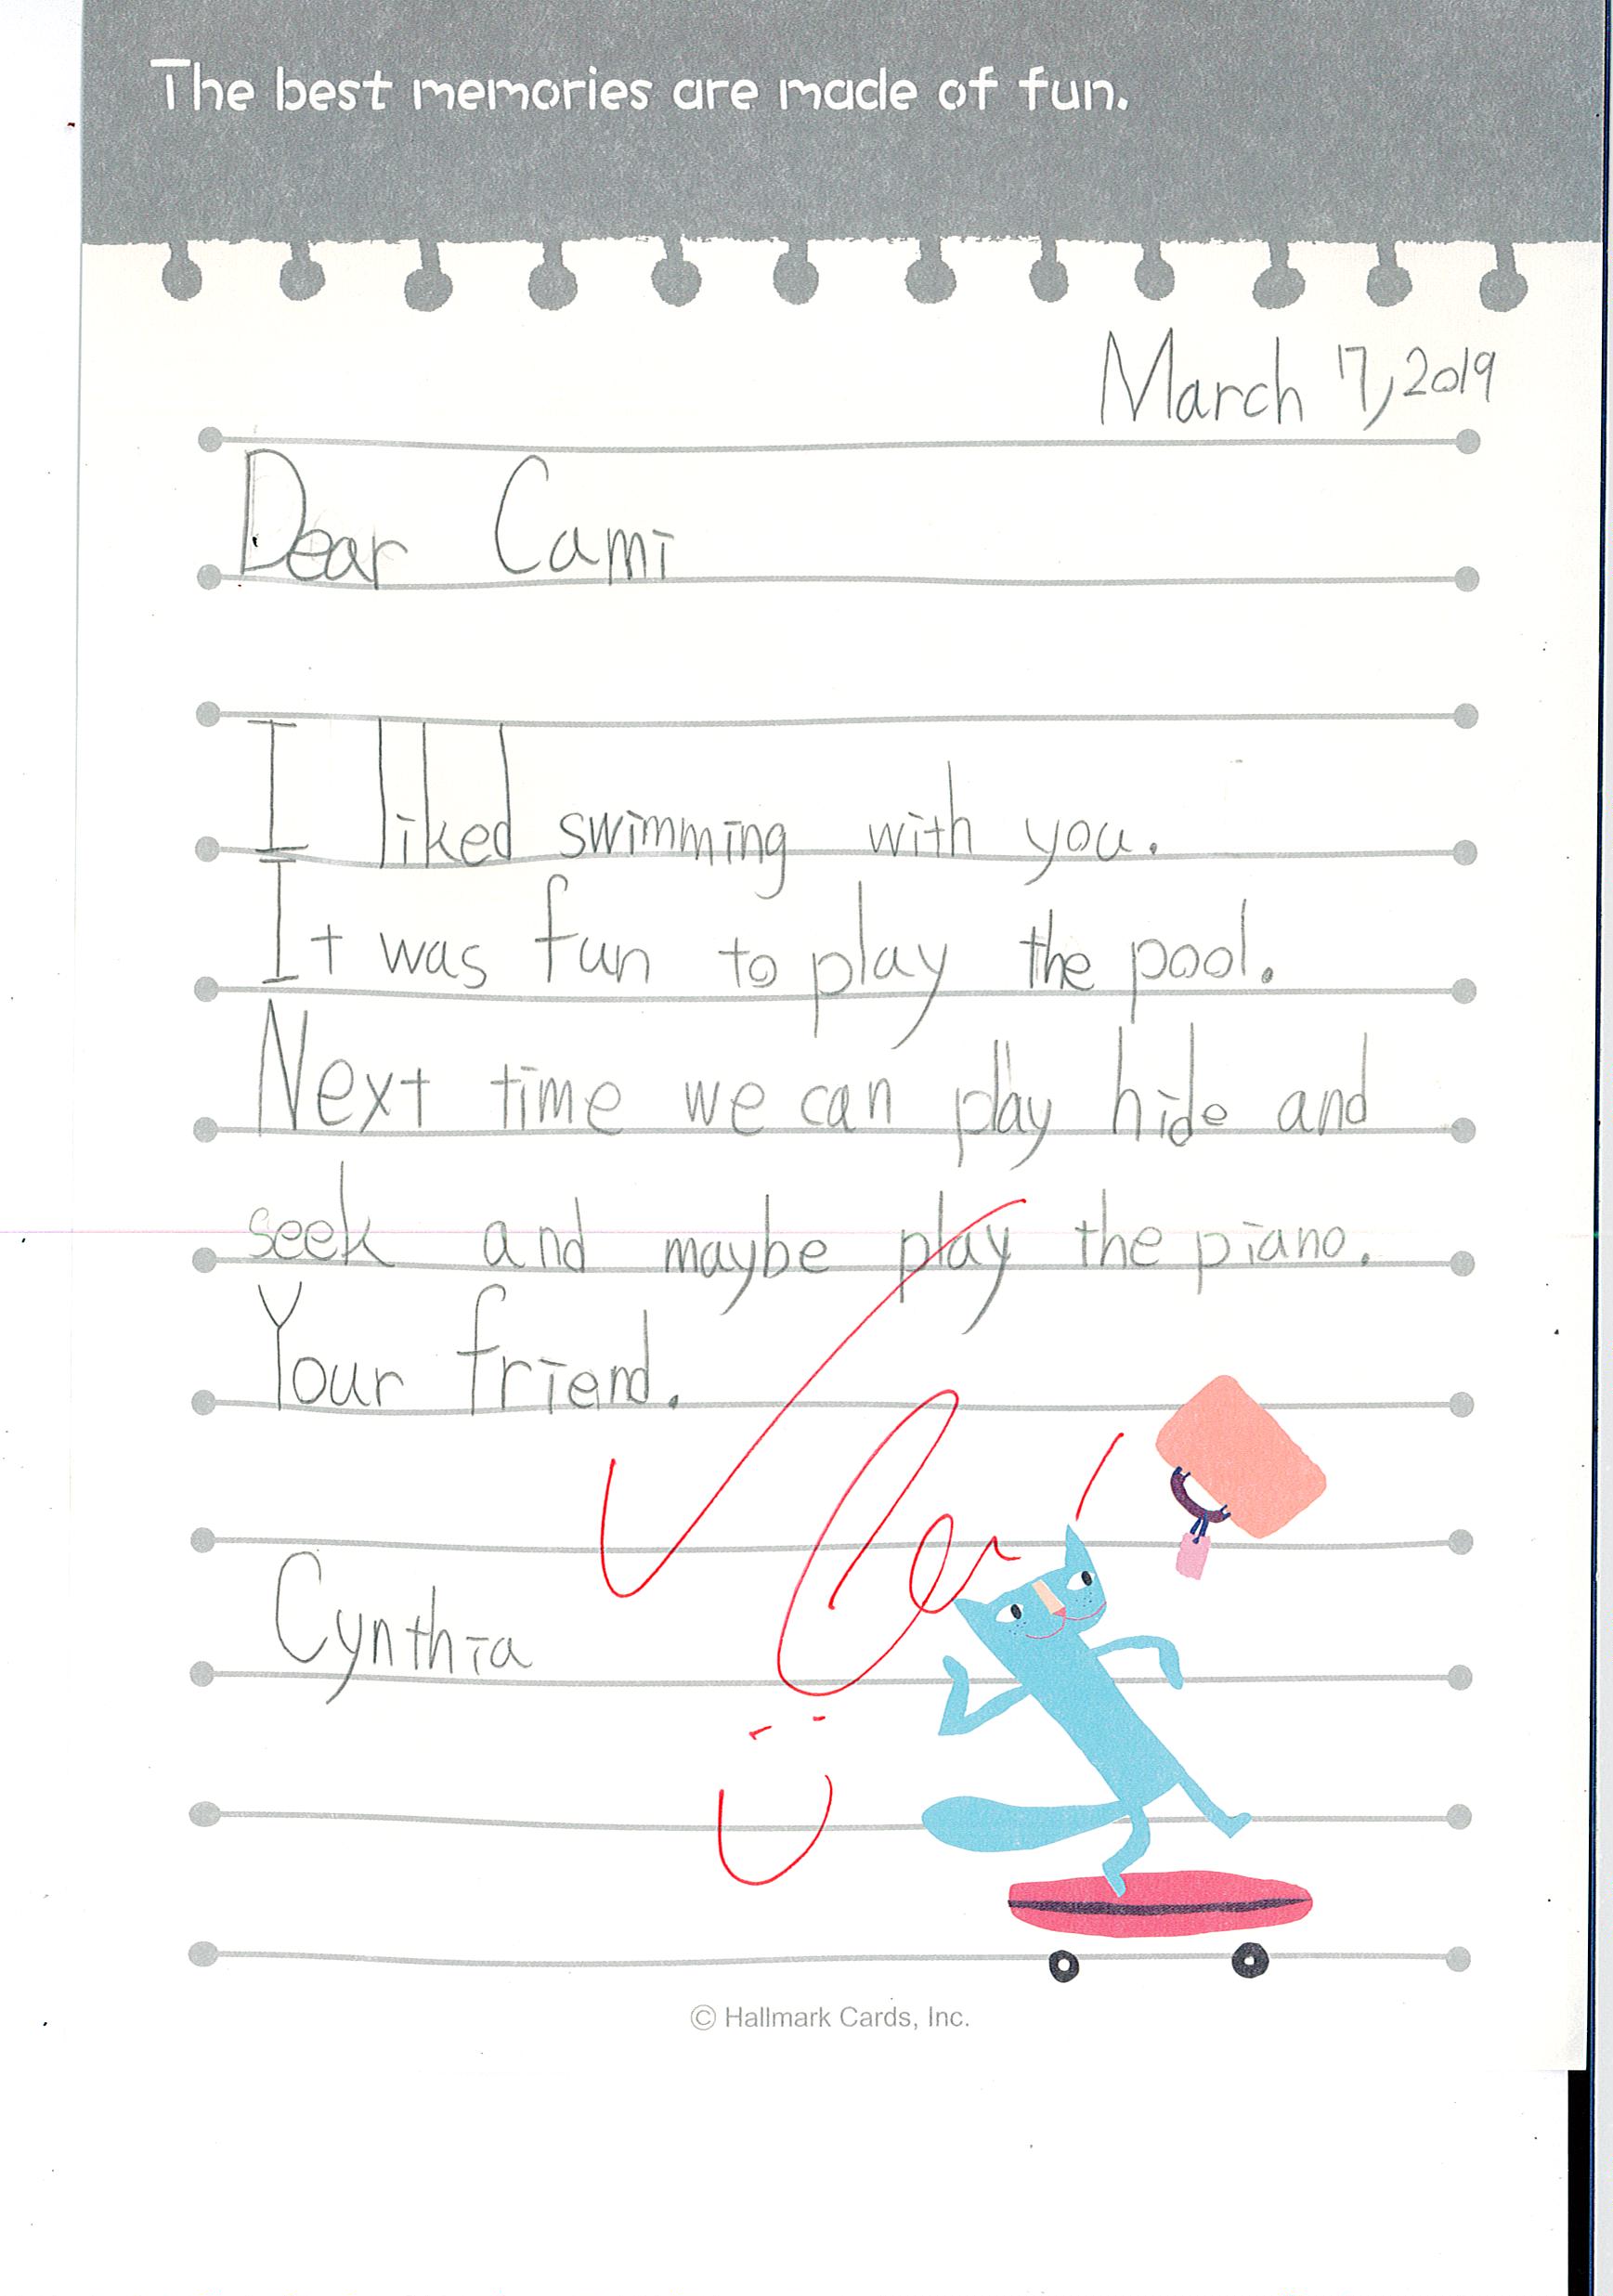 The best memories are made of fun.
March 7, 2019
Dear Cami
I liked swimming with you.
It was fun to play the pool.
Next time we can play hide and
seek and maybe play the piano.
Your friend.
Cynthia
© Hallmark Cards, Inc.